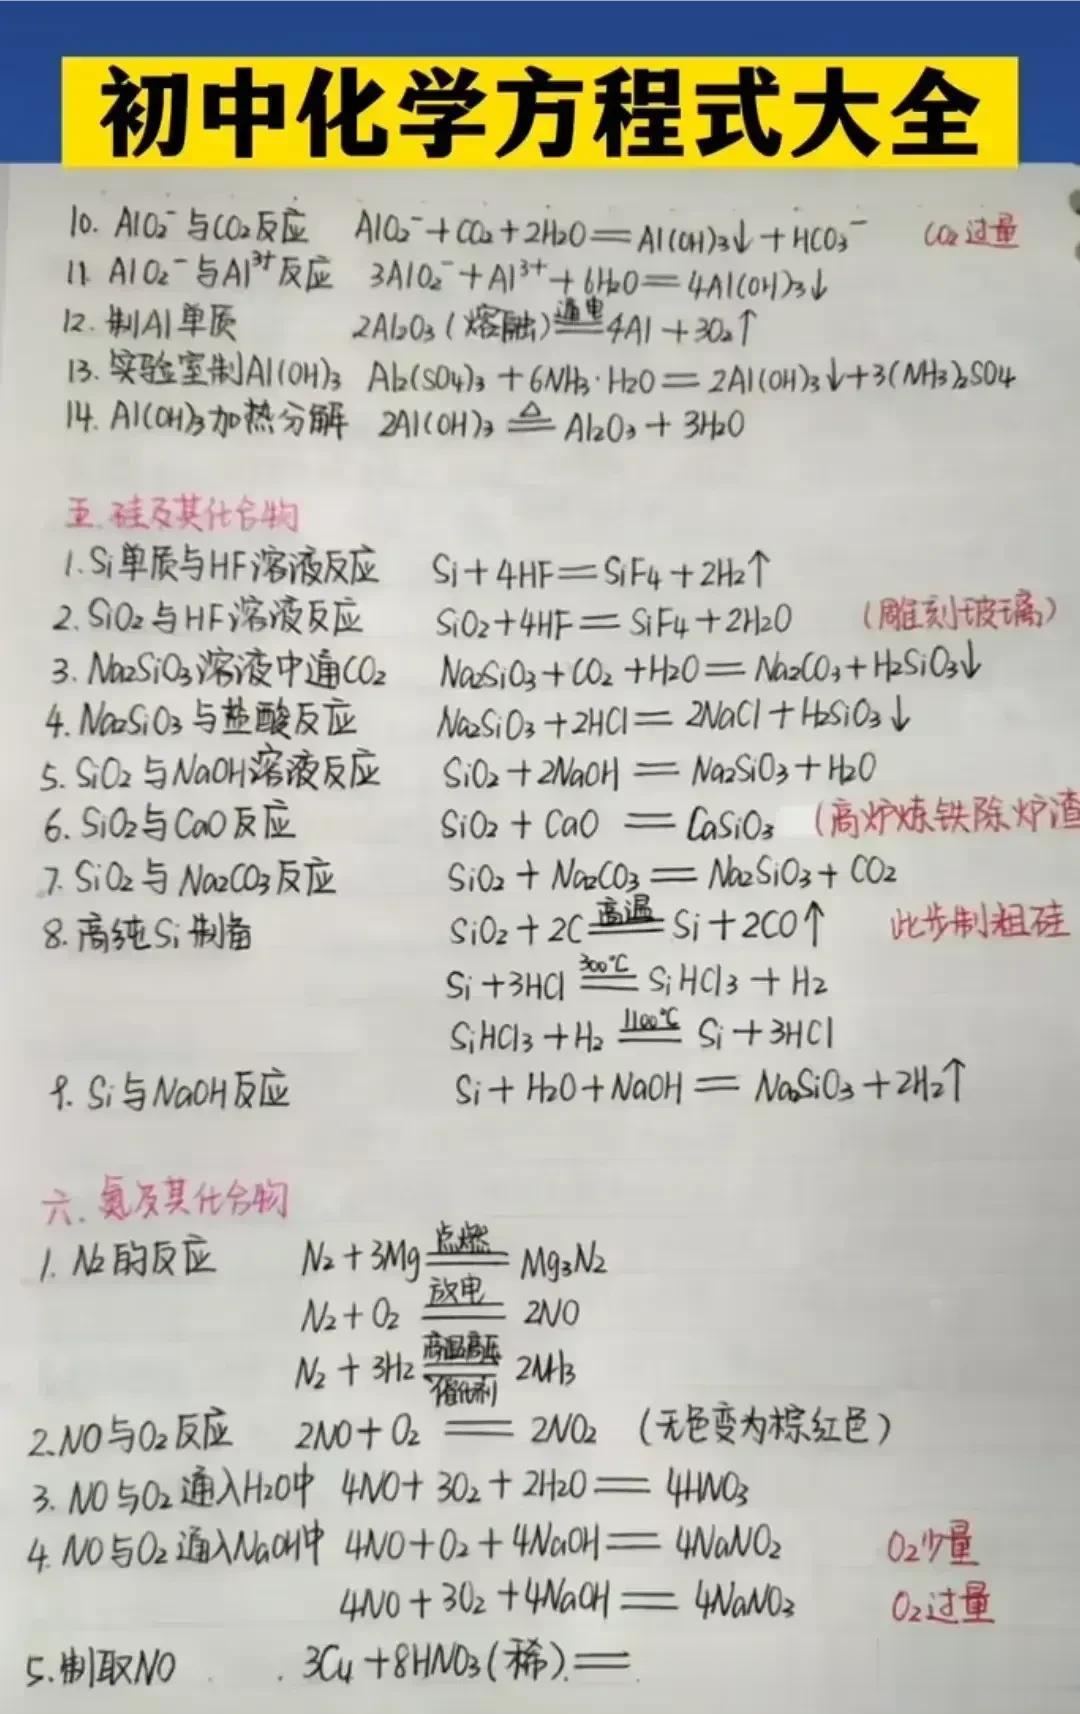 初中化学方程式大全
10. AlO₂⁻与CO₂反应 AlO₂⁻+CO₂+2H₂O═Al(OH)₃↓+HCO₃⁻ CO₂过量
11. AlO₂⁻与Al³⁺反应 3AlO₂⁻+Al³⁺+6H₂O═4Al(OH)₃↓
12. 制Al单质 2Al₂O₃(熔融)═通电═4Al+3O₂↑
13. 实验室制Al(OH)₃ Al₂(SO₄)₃+6NH₃·H₂O═2Al(OH)₃↓+3(NH₃)₂SO₄
14. Al(OH)₃加热分解 2Al(OH)₃═△═Al₂O₃+3H₂O
五. 硅及其化合物
1. Si单质与HF溶液反应 Si+4HF═SiF₄+2H₂↑
2. SiO₂与HF溶液反应 SiO₂+4HF═SiF₄+2H₂O (雕刻玻璃)
3. Na₂SiO₃溶液中通CO₂ Na₂SiO₃+CO₂+H₂O═Na₂CO₃+H₂SiO₃↓
4. Na₂SiO₃与盐酸反应 Na₂SiO₃+2HCl═2NaCl+H₂SiO₃↓
5. SiO₂与NaOH溶液反应 SiO₂+2NaOH═Na₂SiO₃+H₂O
6. SiO₂与CaO反应 SiO₂+CaO═CaSiO₃ (高炉炼铁除炉渣
7. SiO₂与Na₂CO₃反应 SiO₂+Na₂CO₃═Na₂SiO₃+CO₂
8. 高纯Si制备 SiO₂+2C═高温═Si+2CO↑ 此步制粗硅
Si+3HCl═300℃═SiHCl₃+H₂
SiHCl₃+H₂═1100℃═Si+3HCl
9. Si与NaOH反应 Si+H₂O+NaOH═Na₂SiO₃+2H₂↑
六. 氮及其化合物
1. N₂的反应 N₂+3Mg═点燃═Mg₃N₂
N₂+O₂═放电═2NO
N₂+3H₂═高温高压 催化剂═2NH₃
2. NO与O₂反应 2NO+O₂═2NO₂ (无色变为棕红色)
3. NO与O₂通入H₂O中 4NO+3O₂+2H₂O═4HNO₃
4. NO与O₂通入NaOH中 4NO+O₂+4NaOH═4NaNO₂ O₂少量
4NO+3O₂+4NaOH═4NaNO₃ O₂过量
5. 制取NO 3Cu+8HNO₃(稀)═